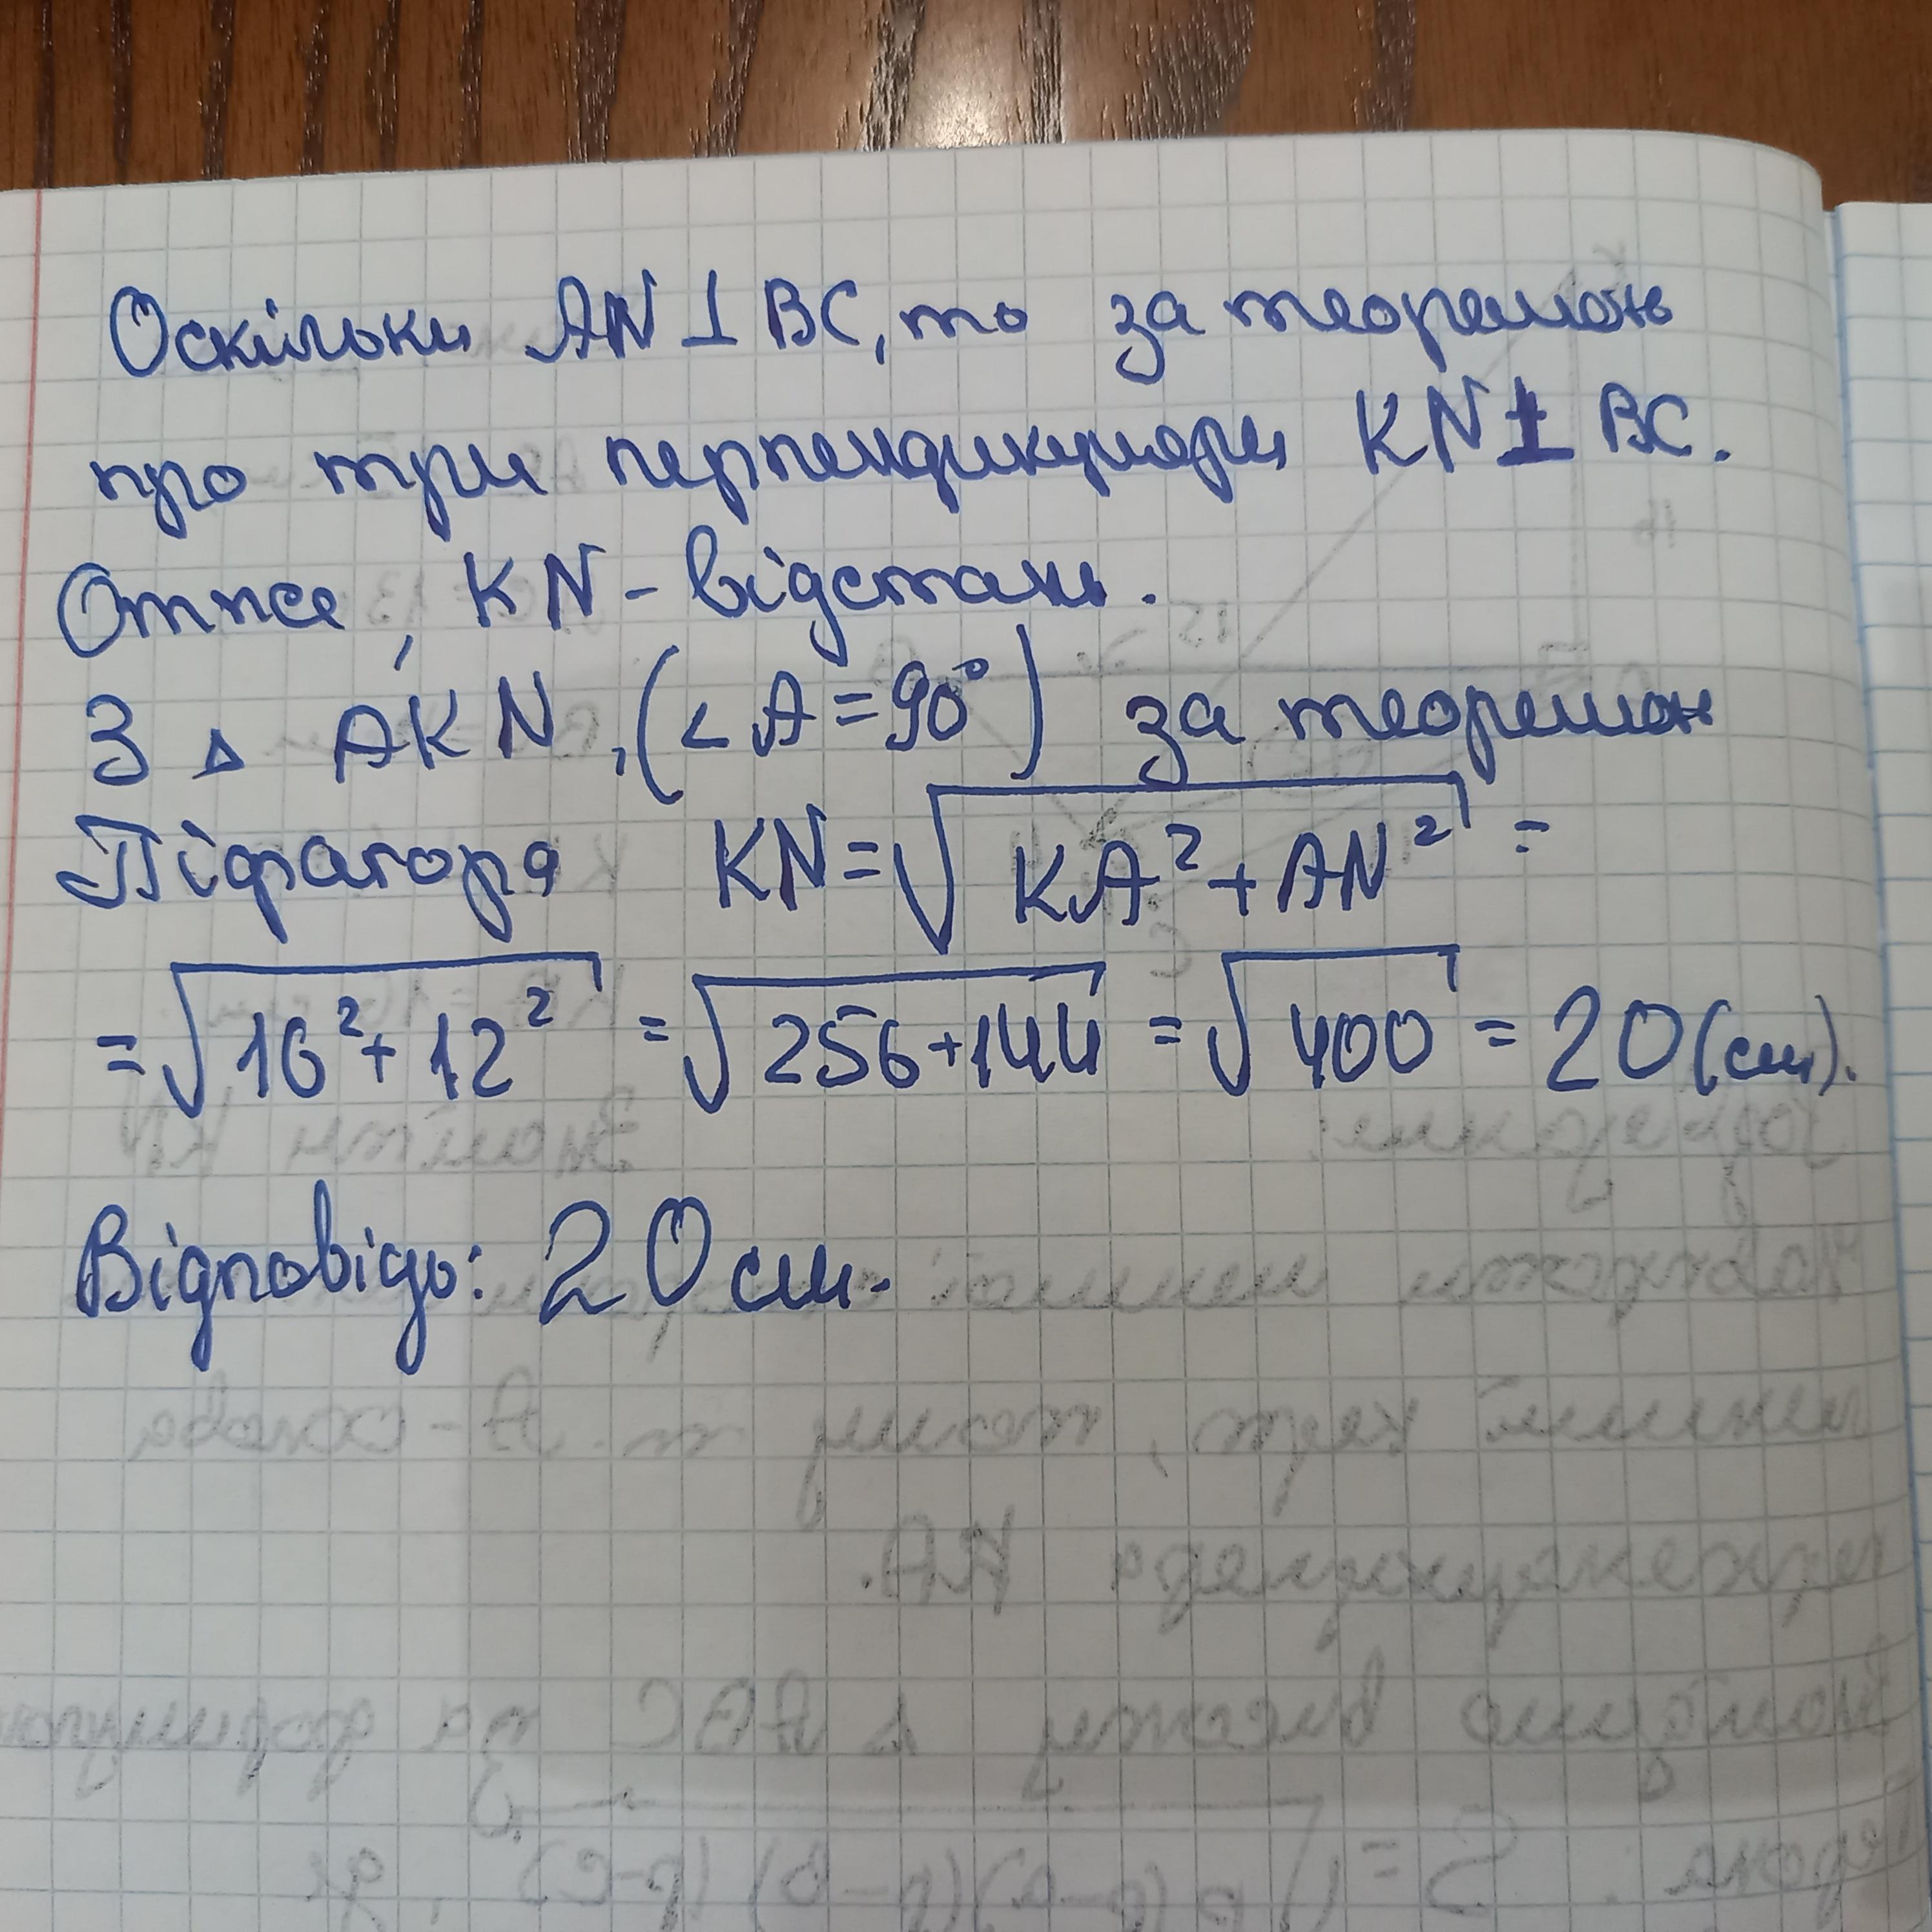 Оскільки AN ⊥ BC, то за теоремою
про три перпендикуляри KN ⊥ BC.
Отже, KN - відстань.
З △ AKN, (∠A = 90°) за теоремою
Піфагора KN = √(KA² + AN²) =
= √(16² + 12²) = √(256 + 144) = √400 = 20 (см).
Відповідь: 20 см.